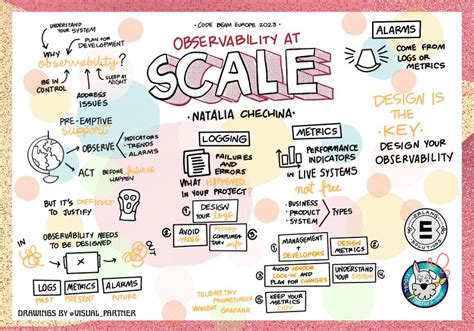 • CODE BEAM EUROPE 2023 •
OBSERVABILITY AT
SCALE
• NATALIA CHECHINA •
UNDERSTAND
YOUR SYSTEM
PLAN FOR
DEVELOPMENT
WHY
observability?
BE IN
CONTROL
SLEEP AT
NIGHT
ADDRESS
ISSUES
PRE-EMPTIVE
support
OBSERVE
INDICATORS
TRENDS
ALARMS
ACT
BEFORE failures
HAPPEN
BUT IT'S DIFFICULT
TO JUSTIFY
OBSERVABILITY NEEDS
TO BE DESIGNED
IN
OUT
LOGS
METRICS
ALARMS
PAST
PRESENT
FUTURE
DRAWINGS BY @VISUAL_PARTNER
LOGGING
FAILURES
AND
ERRORS
WHAT HAPPENED
IN YOUR PROJECT?
DESIGN
YOUR logs
AVOID
MESS
RECORD
COMPLIMENTARY
info
TELEMETRY
PROMETHEUS
WOMBAT GRAFANA
METRICS
PERFORMANCE
INDICATORS
IN LIVE SYSTEMS
not free
• BUSINESS
• PRODUCT
• SYSTEM
TYPES
MANAGEMENT
+
DEVELOPERS
DESIGN
METRICS
AVOID VENDOR
LOCK-IN AND
PLAN FOR CHANGES
UNDERSTAND
YOUR SYSTEM
KEEP YOUR
METRICS TIDY
ALARMS
COME FROM
LOGS OR
METRICS
DESIGN IS
THE
KEY.
DESIGN YOUR
OBSERVABILITY
ERLANG
E
SOLUTIONS